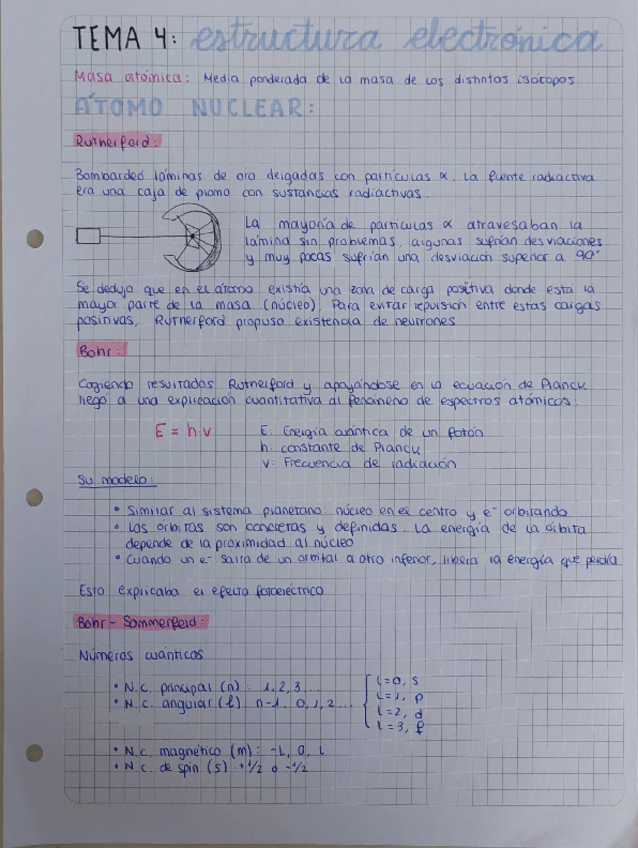 TEMA 4: estructura electrónica
Masa atómica: Media ponderada de la masa de los distintos isótopos
ÁTOMO NUCLEAR:
Rutherford:
Bombardeó láminas de oro delgadas con partículas α. La fuente radiactiva
era una caja de plomo con sustancias radiactivas.
La mayoría de partículas α atravesaban la
lámina sin problemas, algunas sufrían desviaciones
y muy pocas sufrían una desviación superior a 90°
Se dedujo que en el átomo existía una zona de carga positiva donde está la
mayor parte de la masa (núcleo). Para evitar repulsión entre estas cargas
positivas, Rutherford propuso existencia de neutrones
Bohr:
Cogiendo resultados Rutherford y apoyándose en la ecuación de Planck
llegó a una explicación cuantitativa al fenómeno de espectros atómicos:
E = h·v
E: Energía cuántica de un fotón
h: constante de Planck
v: Frecuencia de radiación
Su modelo:
• Similar al sistema planetario: núcleo en el centro y e⁻ orbitando
• Las órbitas son concretas y definidas. La energía de la órbita
depende de la proximidad al núcleo
• Cuando un e⁻ salta de un orbital a otro inferior, libera la energía que perdía
Esto explicaba el efecto fotoeléctrico
Bohr - Sommerfeld:
Números cuánticos
• N.c. principal (n): 1, 2, 3 ...
• N.c. angular (l) n-1 0, 1, 2 ...
l=0, s
l=1, p
l=2, d
l=3, f
• N.c. magnético (m): -L, 0, L
• N.c. de spin (s): +1/2 ó -1/2